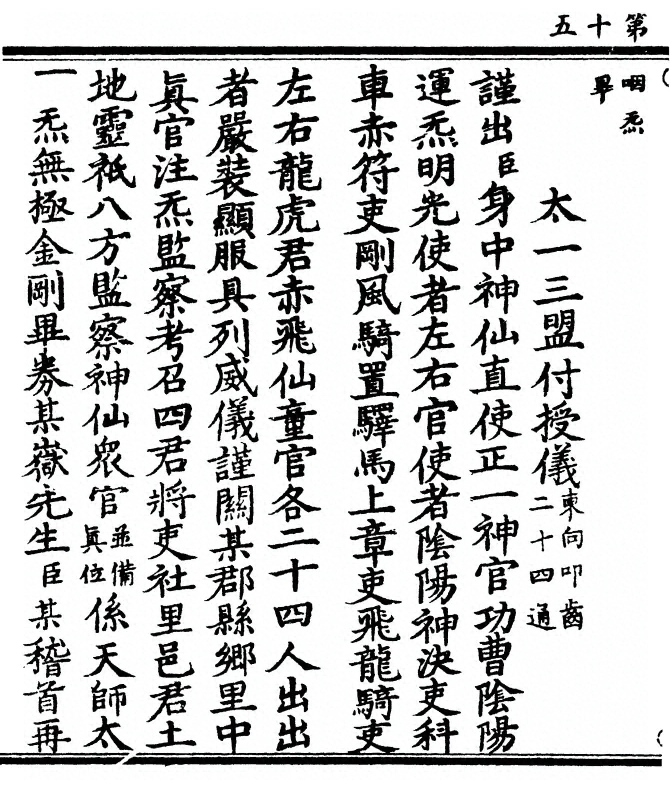 第十五
咽炁
畢
太一三盟付授儀東向叩齒二十四通
謹出臣身中神仙直使正一神官功曹陰陽
運炁明光使者左右官使者陰陽神決吏科
車赤符吏剛風騎置驛馬上章吏飛龍騎吏
左右龍虎君赤飛仙童官各二十四人出出
者嚴裝顯服具列威儀謹關某郡縣鄉里中
眞官注炁監察考召四君將吏社里邑君土
地靈祇八方監察神仙衆官並備眞位係天師太
一炁無極金剛畢券某嶽先生臣某稽首再